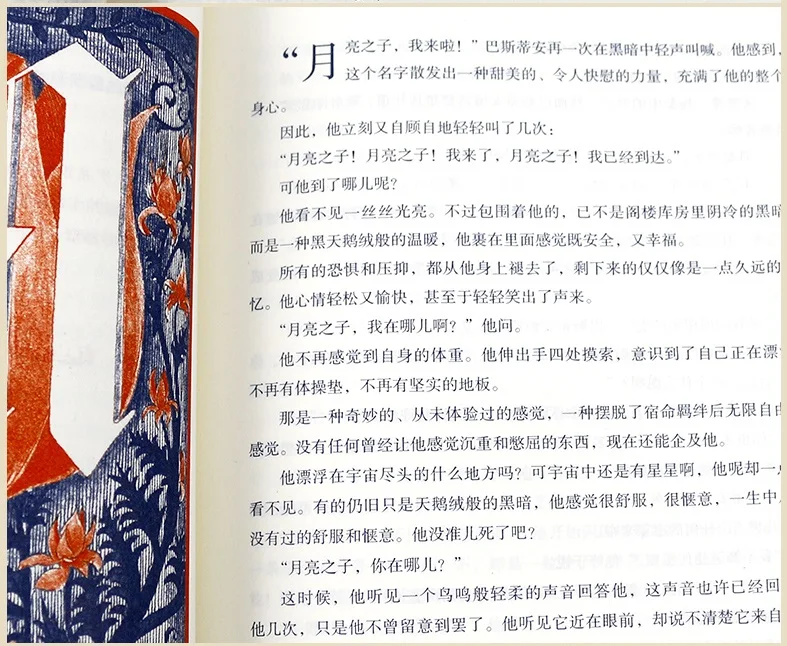 “月亮之子，我来啦！”巴斯蒂安再一次在黑暗中轻声叫喊。他感到，
这个名字散发出一种甜美的、令人快慰的力量，充满了他的整个
身心。
因此，他立刻又自顾自地轻轻叫了几次：
“月亮之子！月亮之子！我来了，月亮之子！我已经到达。”
可他到了哪儿呢？
他看不见一丝丝光亮。不过包围着他的，已不是阁楼库房里阴冷的黑暗
而是一种黑天鹅绒般的温暖，他裹在里面感觉既安全，又幸福。
所有的恐惧和压抑，都从他身上褪去了，剩下来的仅仅像是一点久远的
忆。他心情轻松又愉快，甚至于轻轻笑出了声来。
“月亮之子，我在哪儿啊？”他问。
他不再感觉到自身的体重。他伸出手四处摸索，意识到了自己正在漂
不再有体操垫，不再有坚实的地板。
那是一种奇妙的、从未体验过的感觉，一种摆脱了宿命羁绊后无限自由
感觉。没有任何曾经让他感觉沉重和憋屈的东西，现在还能企及他。
他漂浮在宇宙尽头的什么地方吗？可宇宙中还是有星星啊，他呢却一
看不见。有的仍旧只是天鹅绒般的黑暗，他感觉很舒服，很惬意，一生中
没有过的舒服和惬意。他没准儿死了吧？
“月亮之子，你在哪儿？”
这时候，他听见一个鸟鸣般轻柔的声音回答他，这声音也许已经回
他几次，只是他不曾留意到罢了。他听见它近在眼前，却说不清楚它来自